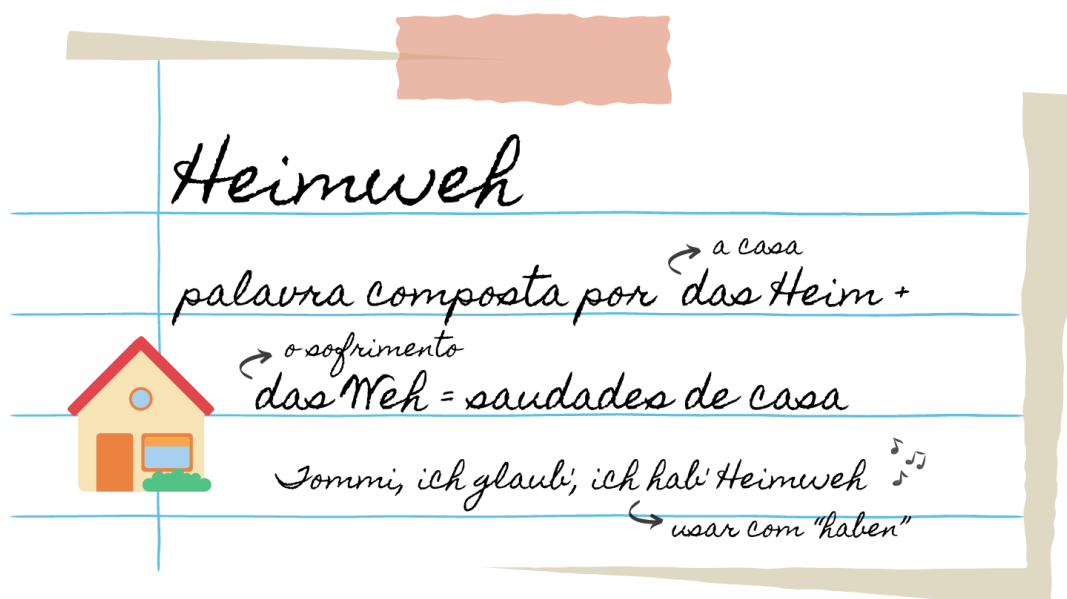 Heimweh
a casa
palavra composta por das Heim +
o sofrimento
das Weh = saudades de casa
Tommi, ich glaub', ich hab' Heimweh
usar com "haben"